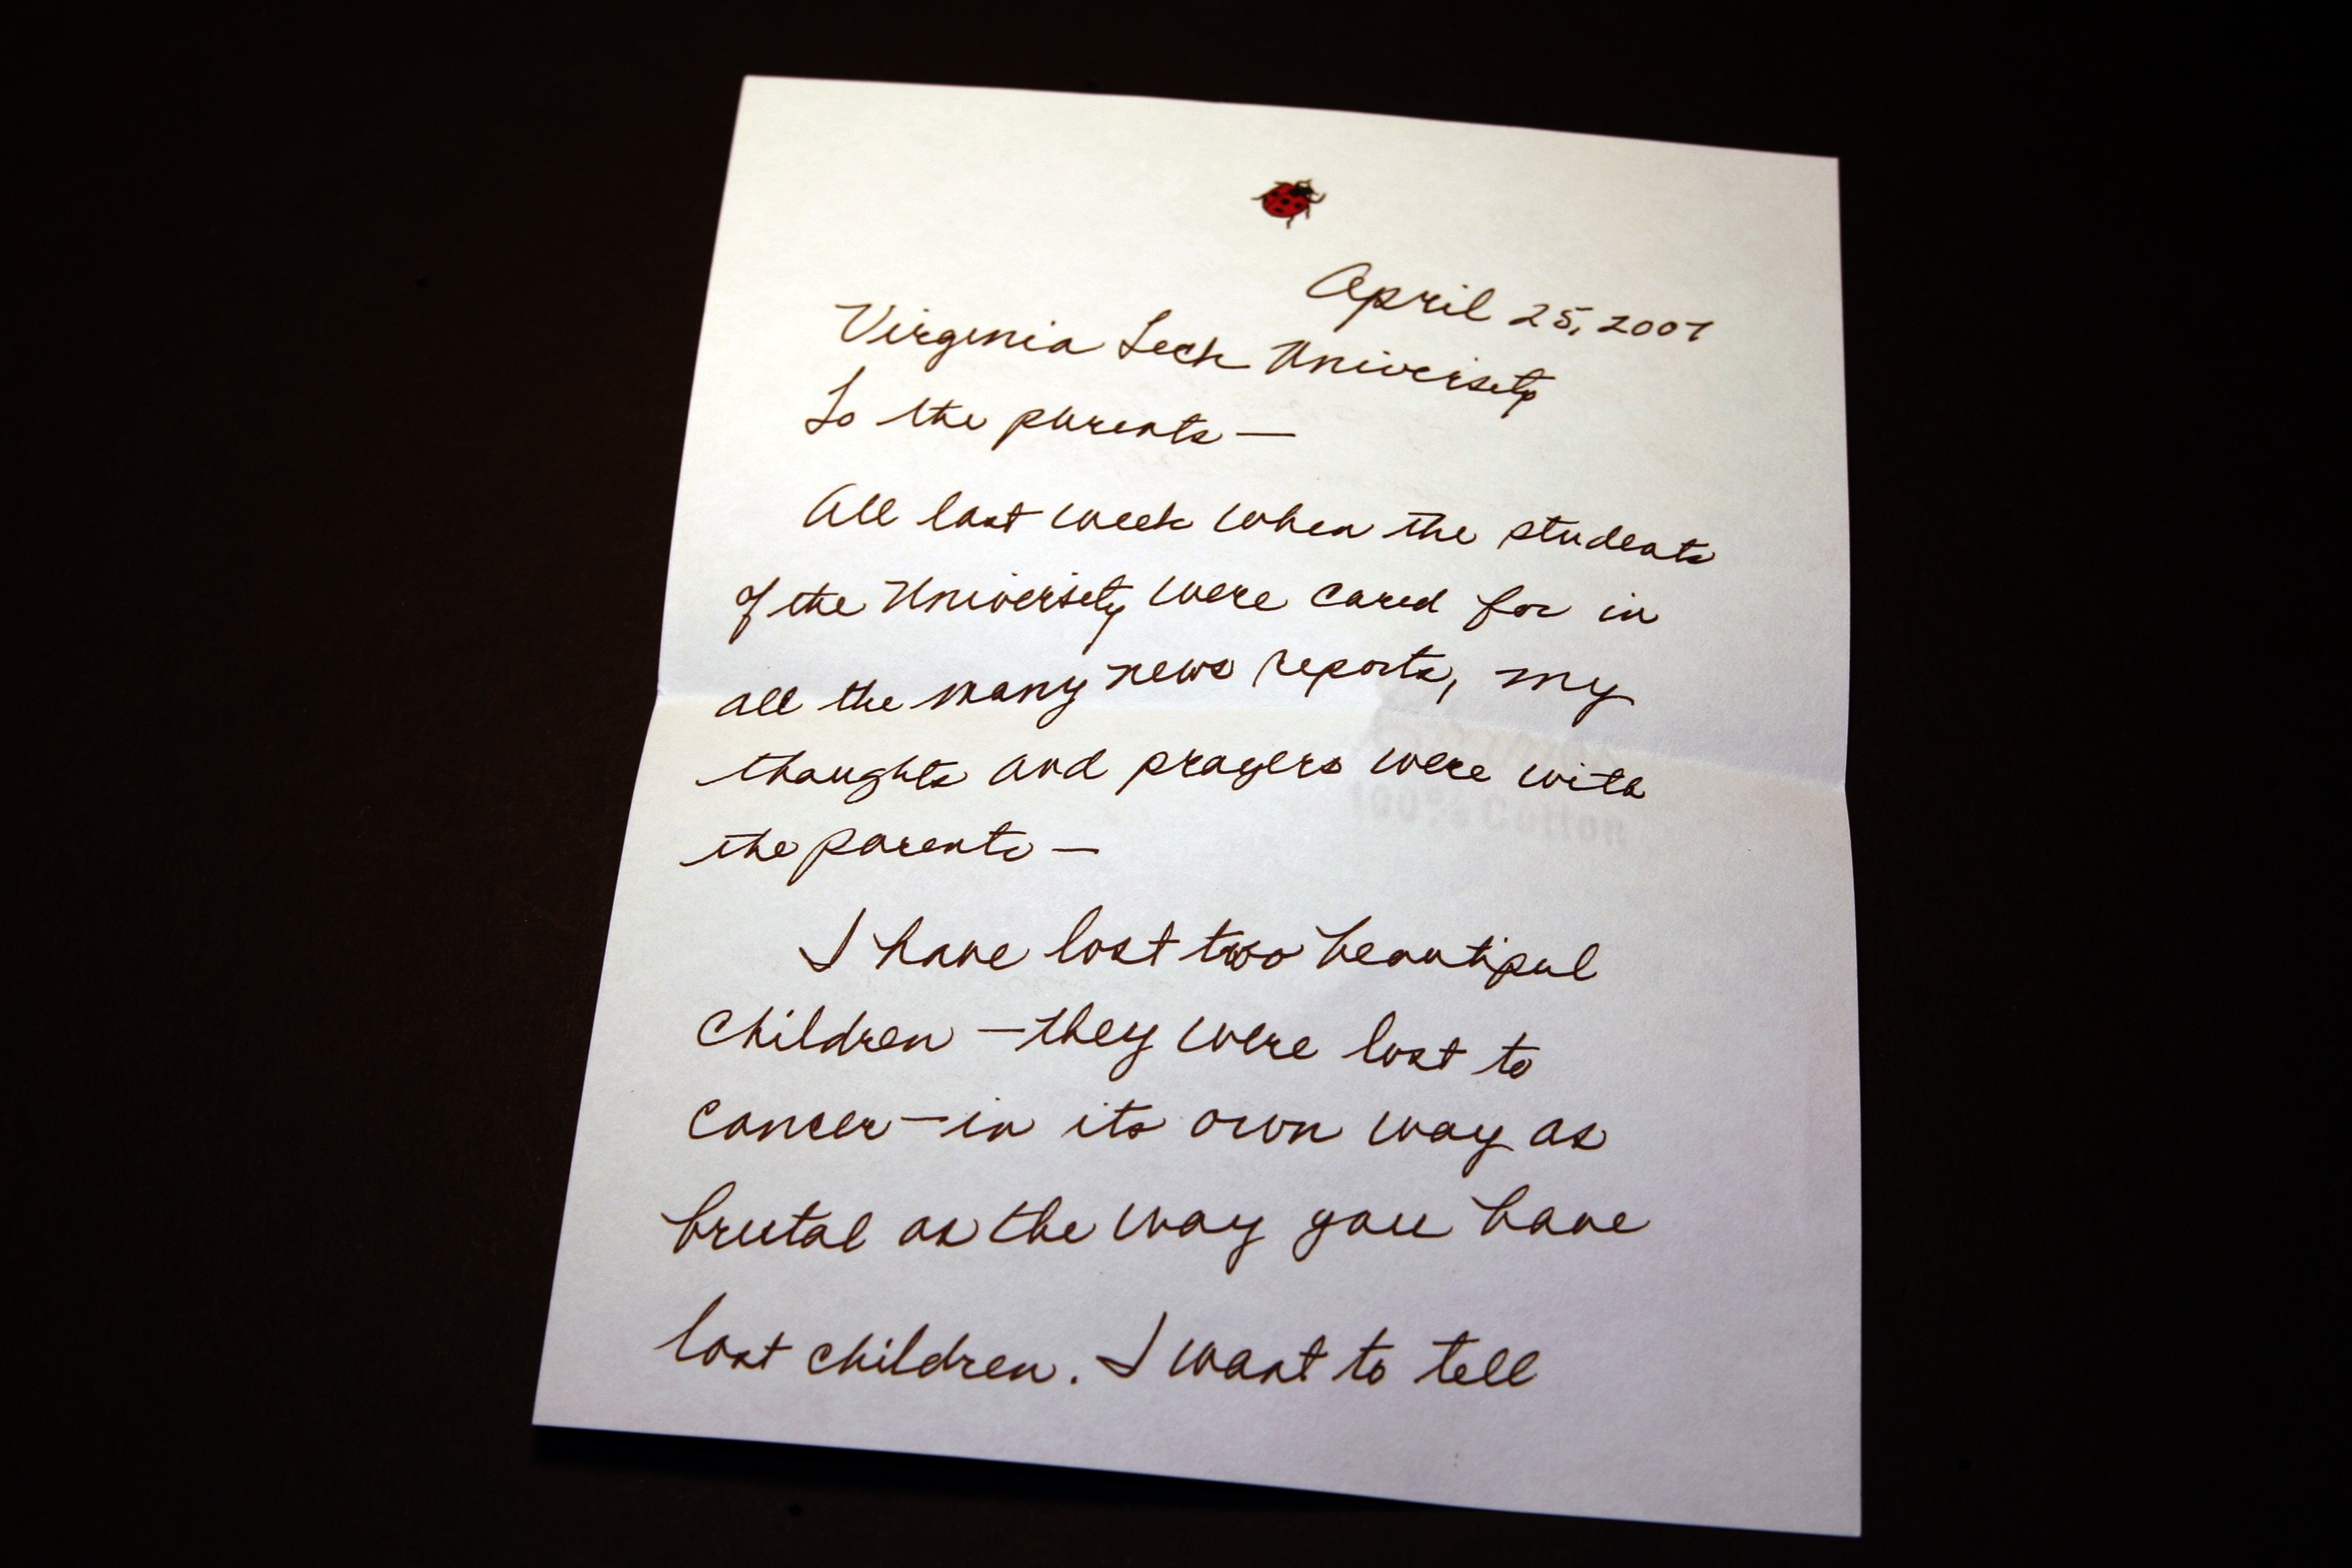 April 25, 2007
Virginia Tech University
To the parents —
All last week when the students
of the University were cared for in
all the many news reports, my
thoughts and prayers were with
the parents —
100% Cotton
I have lost two beautiful
children — they were lost to
cancer — in its own way as
brutal as the way you have
lost children. I want to tell